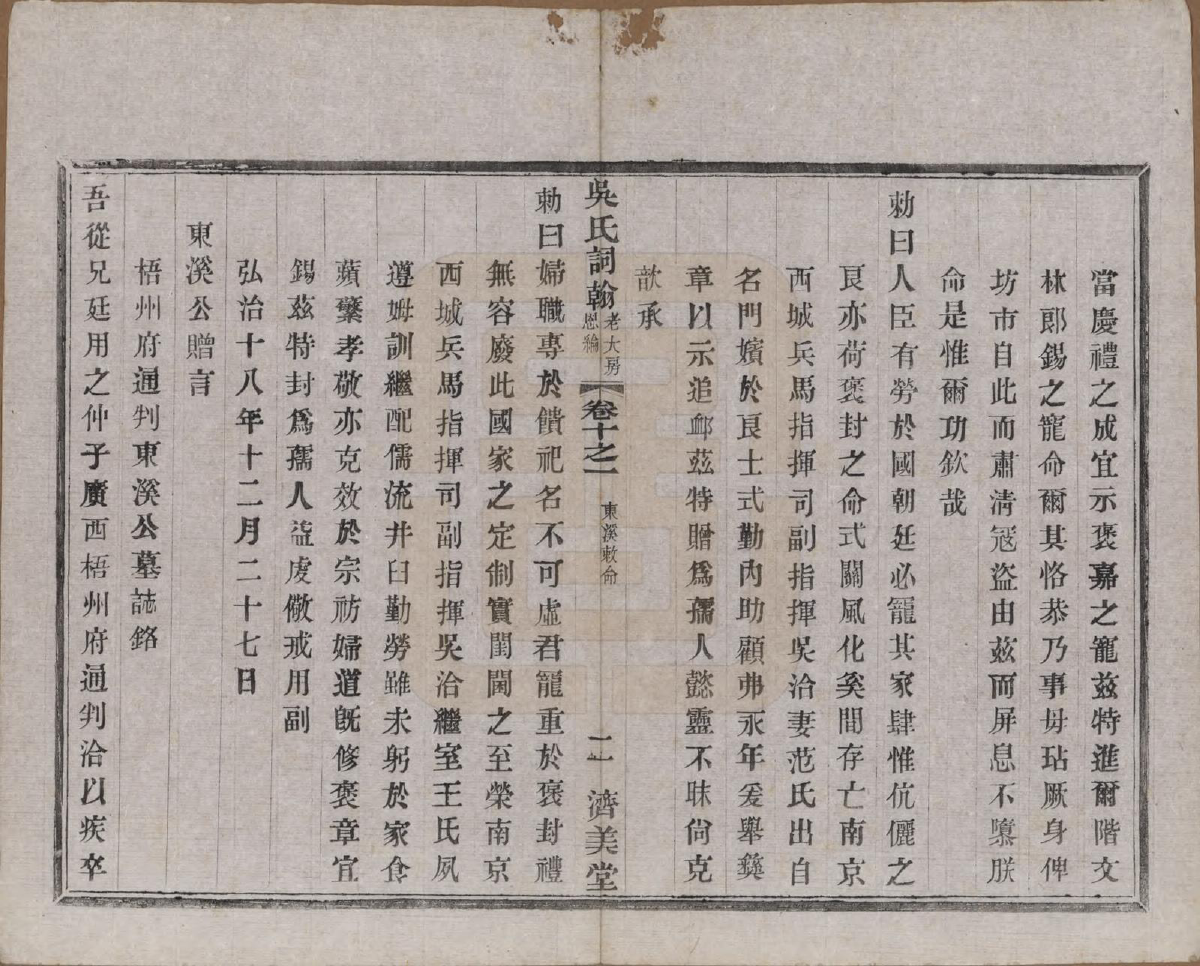 當慶禮之成宜示褒嘉之寵茲特進爾階文
林郎錫之寵命爾其恪恭乃事毋玷厥身俾
坊市自此而肅清寇盜由茲而屏息不隳朕
命是惟爾功欽哉
勅曰人臣有勞於國朝廷必寵其家肆惟伉儷之
良亦荷褒封之命式關風化奚間存亡南京
西城兵馬指揮司副指揮吳洽妻范氏出自
名門嬪於良士式勤內助顧弗永年爰舉彝
章以示追卹茲特贈爲孺人懿靈不昧尙克
歆承
吳氏詞翰 老大房恩綸 卷十之一 東溪敕命 二 濟美堂
勅曰婦職專於饋祀名不可虛君寵重於褒封禮
無容廢此國家之定制實閨閫之至榮南京
西城兵馬指揮司副指揮吳洽繼室王氏夙
遵姆訓繼配儒流井臼勤勞雖未躬於家食
蘋蘩孝敬亦克效於宗祊婦道旣修褒章宜
錫茲特封爲孺人益虔儆戒用副
弘治十八年十二月二十七日
東溪公贈言
梧州府通判東溪公墓誌銘
吾從兄廷用之仲子廣西梧州府通判洽以疾卒